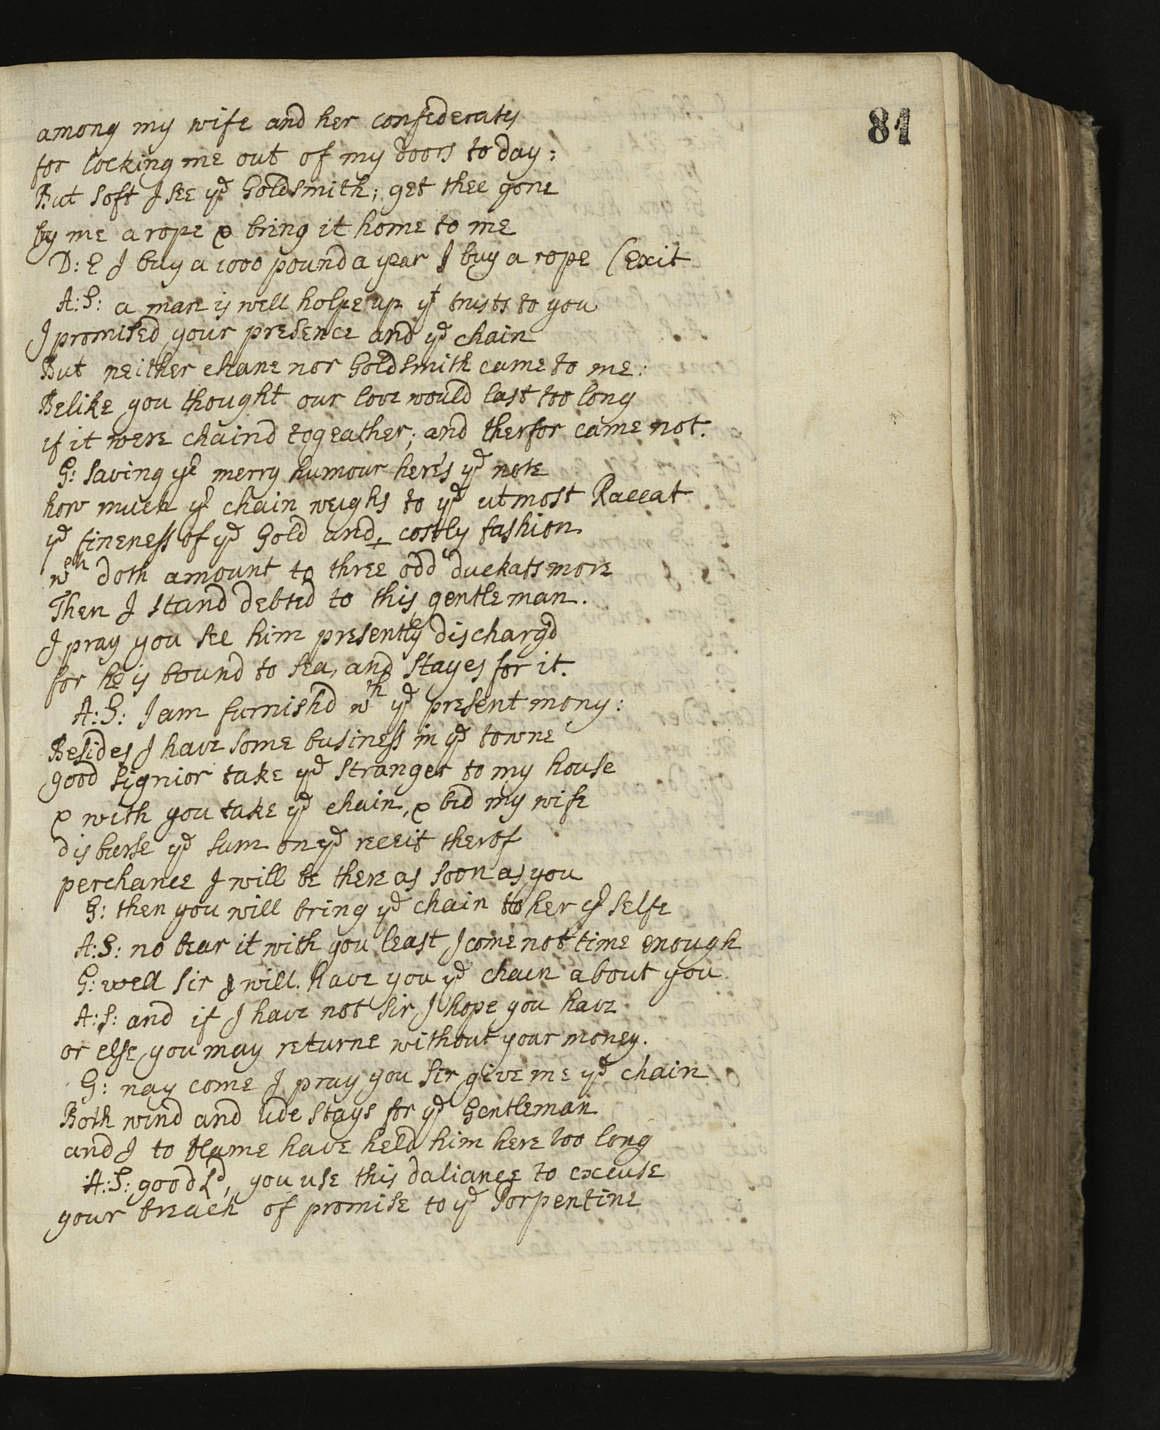 81
among my wife and her confederats
for locking me out of my doors to day:
But soft I see yᵉ Goldsmith; get thee gone
by me a rope & bring it home to me
D: E I buy a 1000 pound a year I buy a rope (Exit
A: S: a man is well holpe up yᵗ trusts to you
I promised your presence and yᵉ chain
But neither chane nor Goldsmith came to me:
Belike you thought our love would last too long
if it were chaind togeather; and therfor came not.
G: saving yʳ merry humour here's yᵉ note
how much yʳ chain weighs to yᵉ utmost Raccat
yᵉ fineness of yᵉ Gold and costly fashion
wᶜʰ doth amount to three odd duckats more
Then I stand debted to this gentleman.
I pray you see him presently discharg'd
for he is bound to sea, and stayes for it.
A: S: I am furnish'd wᵗʰ yᵉ present mony:
Besides I have some business in yᵉ towne
good signior take yᵉ stranger to my house
& with you take yᵉ chain, & bid my wife
disburse yᵉ sum on yᵉ receit therof
perchance I will be there as soon as you
G: then you will bring yᵉ chain to her yʳ selfe
A: S: no bear it with you least I come not time enough
G: well sir I will. have you yᵉ chain about you
A: S: and if I have not sir I hope you have
or else you may returne without your money.
G: nay come I pray you sir give me yᵉ chain
Both wind and tide stays for yᵉ Gentleman
and I to blame have held him here too long
A: S: good Lᵈ, you use this daliance to excuse
your breach of promise to yᵉ Porpentine